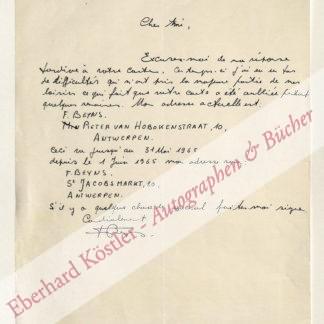 Cher Ami,
Excusez-moi de ma réponse
tardive à votre carte. Ce temps-ci j'ai eu un tas
de difficultés qui m'ont pris la majeure partie de mes
loisirs ce qui fait que votre carte a été oubliée
quelques semaines. Mon adresse actuelle est:
F. BEYNS.
PIETER VAN HOBOKENSTRAAT, 10,
ANTWERPEN.
Ceci va jusqu'au 31 Mai 1965
depuis le 1 Juin 1965 mon adresse
F. BEYNS.
St JACOBSMARKT, 10.
ANTWERPEN.
S'il y a quelque chose faites-moi signe
Cordialement
Eberhard Köstler - Autographen & Bücher